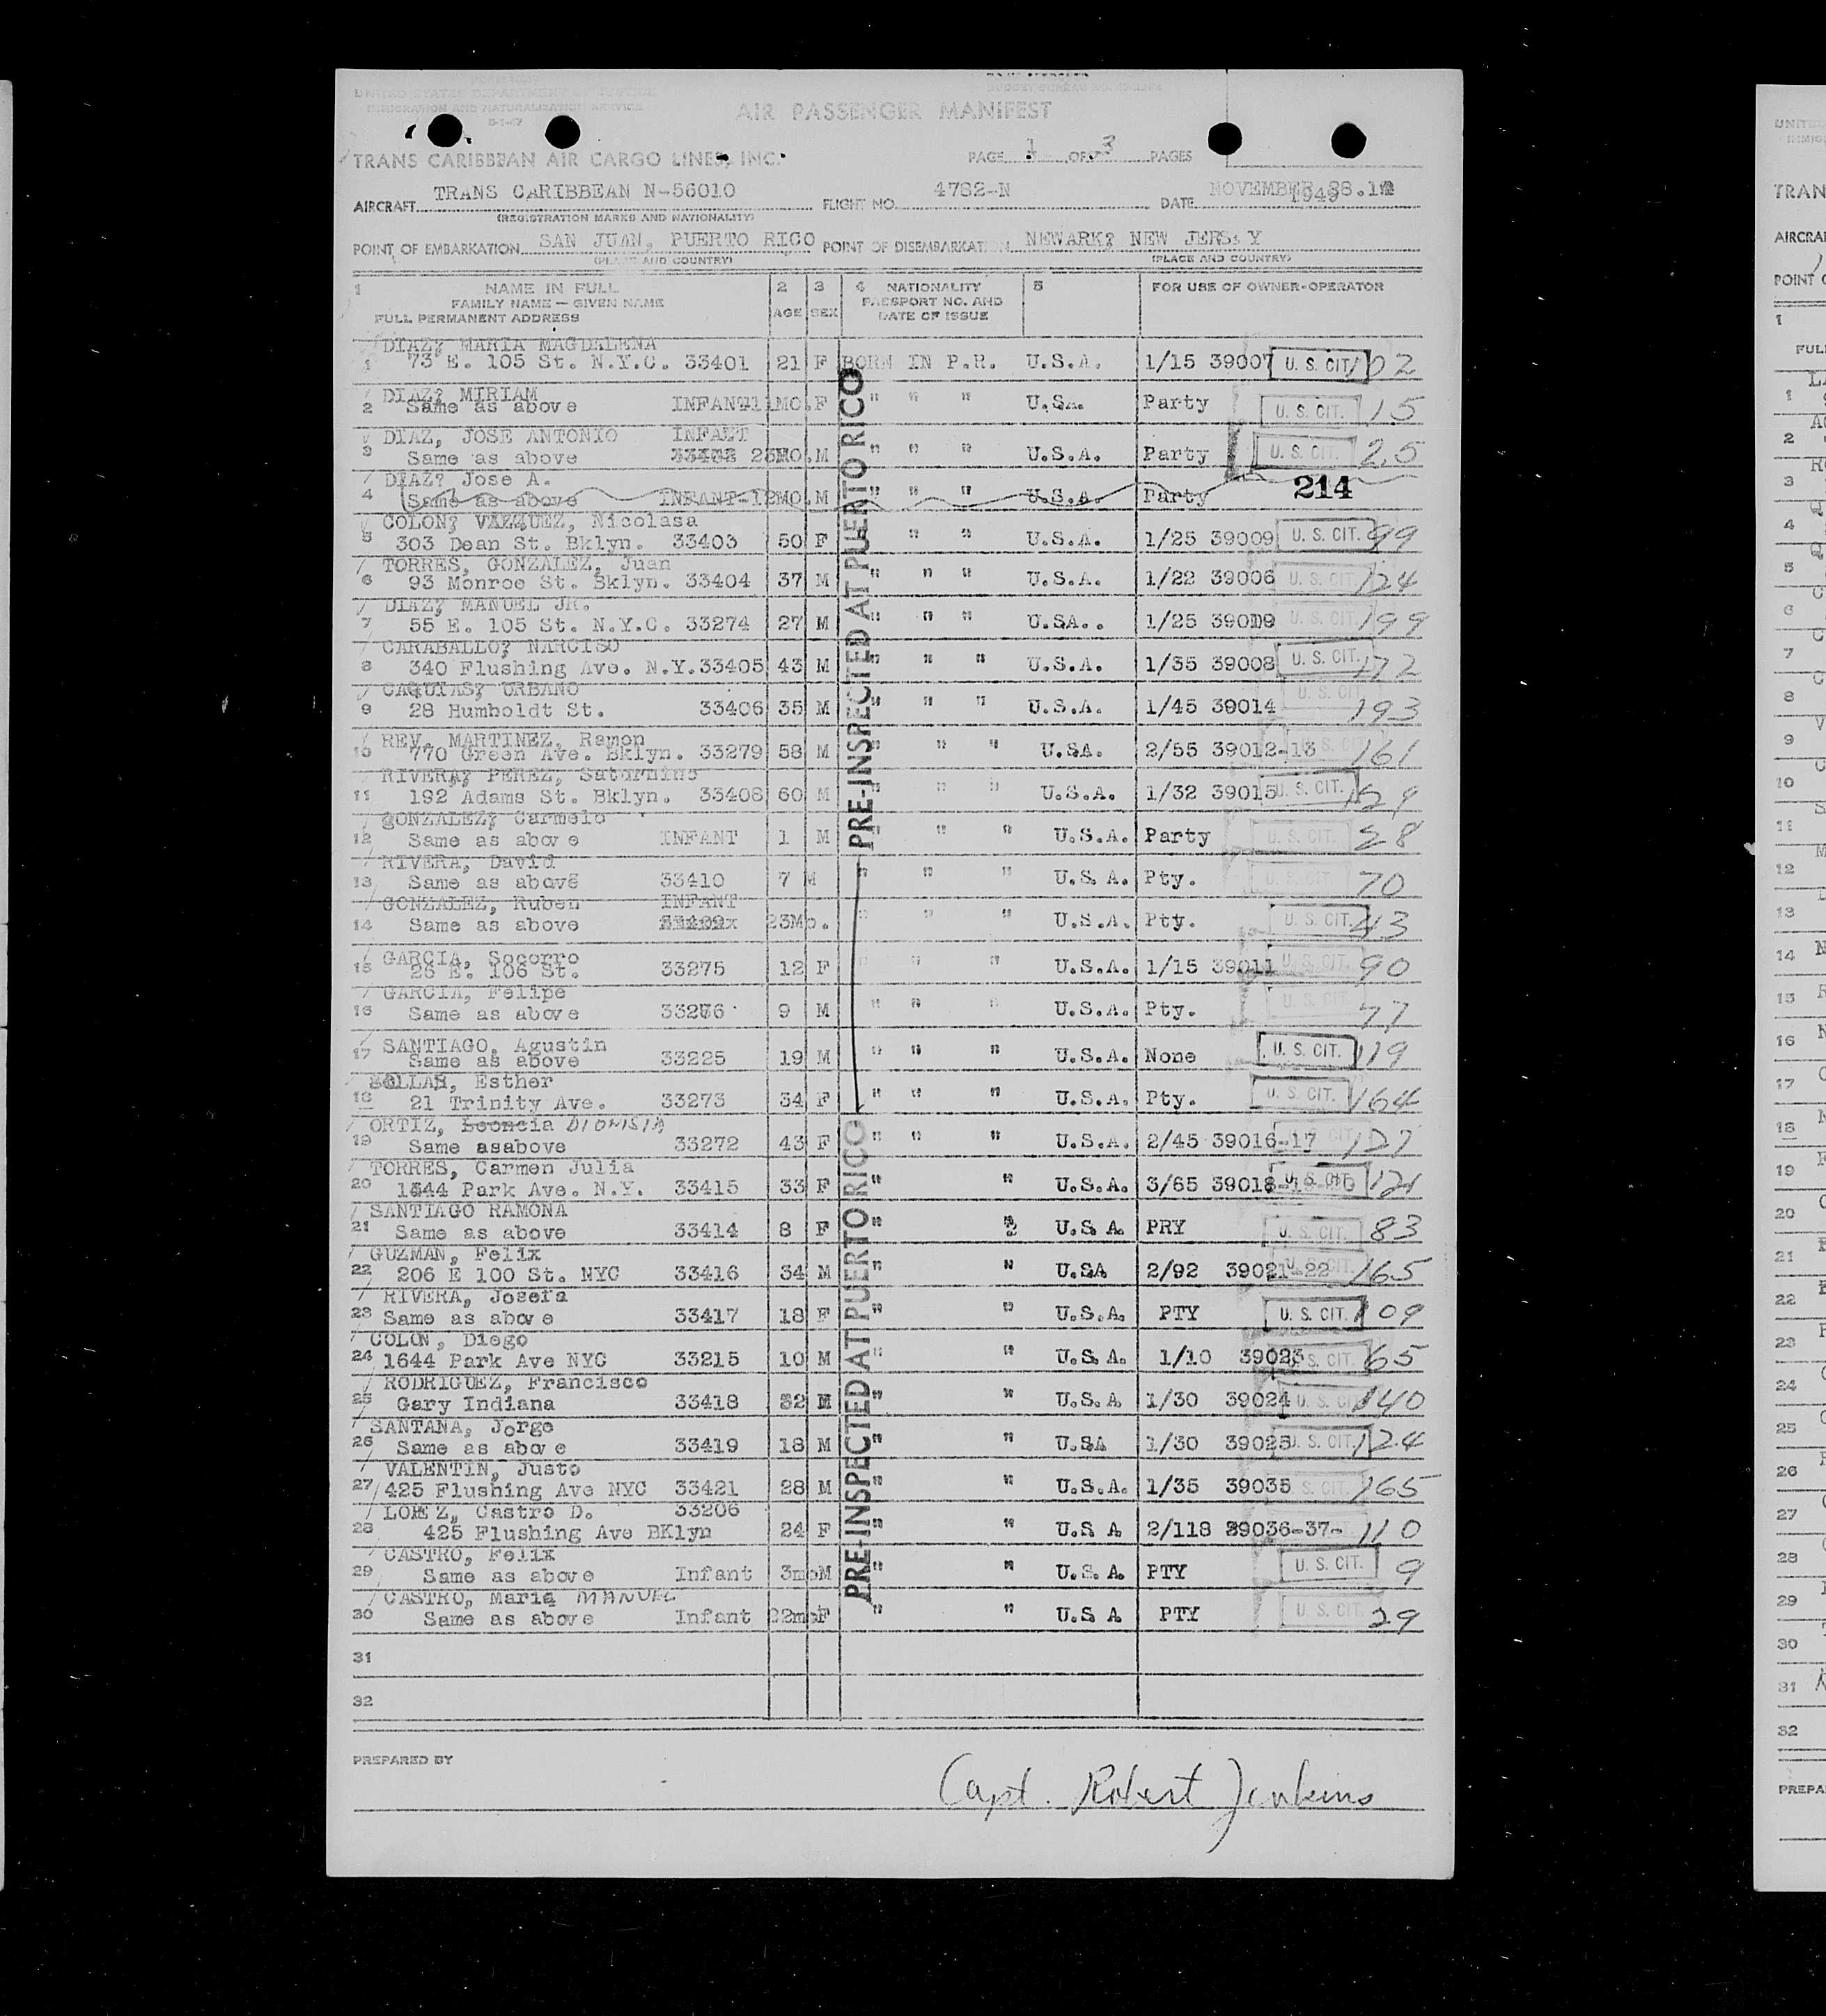 UNITED STATES DEPARTMENT OF JUSTICE
IMMIGRATION AND NATURALIZATION SERVICE
AIR PASSENGER MANIFEST
TRANS CARIBBEAN AIR CARGO LINES, INC.
PAGE 1 OF 3 PAGES
AIRCRAFT TRANS CARIBBEAN N-56010 FLIGHT NO. 4782-N DATE NOVEMBER 28.19
1949
(REGISTRATION MARKS AND NATIONALITY)
POINT OF EMBARKATION SAN JUAN, PUERTO RICO POINT OF DISEMBARKATION NEWARK? NEW JERSEY
(PLACE AND COUNTRY) (PLACE AND COUNTRY)
1 NAME IN FULL 2 3 4 NATIONALITY 5 FOR USE OF OWNER-OPERATOR
FAMILY NAME — GIVEN NAME AGE SEX PASSPORT NO. AND
FULL PERMANENT ADDRESS DATE OF ISSUE
DIAZ? MARIA MAGDALENA
1 73 E. 105 St. N.Y.C. 33401 21 F BORN IN P.R. U.S.A. 1/15 39007 U. S. CIT. 102
DIAZ? MIRIAM
2 Same as above INFANT 11MO. F " " " U.SA. Party U. S. CIT. 15
DIAZ, JOSE ANTONIO INFANT
3 Same as above 33402 23MO. M " " " U.S.A. Party U. S. CIT. 25
DIAZ? Jose A.
4 Same as above INFANT-12MO. M " " " U.S.A. Party 214
COLON? VAZQUEZ, Nicolasa
5 303 Dean St. Bklyn. 33403 50 F " " U.S.A. 1/25 39009 U. S. CIT. 99
TORRES, GONZALEZ, Juan
6 93 Monroe St. Bklyn. 33404 37 M " " " U.S.A. 1/22 39006 U. S. CIT. 124
DIAZ? MANUEL JR.
7 55 E. 105 St. N.Y.C. 33274 27 M " " " U.SA.. 1/25 39010 U. S. CIT. 199
CARABALLO? NARCISO
8 340 Flushing Ave. N.Y. 33405 43 M " " " U.S.A. 1/35 39008 U. S. CIT. 172
CAQUIAS? URBANO
9 28 Humboldt St. 33406 35 M " " " U.S.A. 1/45 39014 U. S. CIT. 193
REV. MARTINEZ, Ramon
10 770 Green Ave. Bklyn. 33279 58 M " " " U.SA. 2/55 39012-13 U. S. CIT. 161
RIVERA? PEREZ, Saturnino
11 192 Adams St. Bklyn. 33408 60 M " " " U.S.A. 1/32 39015 U. S. CIT. 129
GONZALEZ? Carmelo
12 Same as above INFANT 1 M " " " U.S.A. Party U. S. CIT. 28
RIVERA, David
13 Same as above 33410 7 M " " " U.S.A. Pty. U. S. CIT. 70
GONZALEZ, Ruben INFANT
14 Same as above 33409x 23Mo. " " " U.S.A. Pty. U. S. CIT. 43
GARCIA, Socorro
15 26 E. 106 St. 33275 12 F " " " U.S.A. 1/15 39011 U. S. CIT. 90
GARCIA, Felipe
16 Same as above 33276 9 M " " " U.S.A. Pty. U. S. CIT. 77
SANTIAGO, Agustin
17 Same as above 33225 19 M " " " U.S.A. None U. S. CIT. 119
Esther
18 21 Trinity Ave. 33273 34 F " " " U.S.A. Pty. U. S. CIT. 164
ORTIZ, Leoncia DIONISIA
19 Same asabove 33272 43 F " " " U.S.A. 2/45 39016-17 U. S. CIT. 127
TORRES, Carmen Julia
20 1644 Park Ave. N.Y. 33415 33 F " " U.S.A. 3/65 39018 U. S. CIT. 121
SANTIAGO RAMONA
21 Same as above 33414 8 F " " U.S.A. PRY U. S. CIT. 83
GUZMAN, Felix
22 206 E 100 St. NYC 33416 34 M " " U.SA 2/92 39021-22 U. S. CIT. 165
RIVERA, Josefa
23 Same as above 33417 18 F " " U.S.A. PTY U. S. CIT. 109
COLON, Diego
24 1644 Park Ave NYC 33215 10 M " " U.S.A. 1/10 39023 U. S. CIT. 65
RODRIGUEZ, Francisco
25 Gary Indiana 33418 32 M " " U.S.A 1/30 39024 U. S. CIT. 140
SANTANA, Jorge
26 Same as above 33419 18 M " " U.SA 1/30 39025 U. S. CIT. 124
VALENTIN, Justo
27 425 Flushing Ave NYC 33421 28 M " " U.S.A. 1/35 39035 U. S. CIT. 165
LOPEZ, Castro D. 33206
28 425 Flushing Ave BKlyn 24 F " " U.S A 2/118 39036-37- 110
CASTRO, Felix
29 Same as above Infant 3mo M " " U.S.A. PTY U. S. CIT. 9
CASTRO, Maria MANUEL
30 Same as above Infant 22mo F " " U.S A PTY U. S. CIT. 29
31
32
PRE-INSPECTED AT PUERTO RICO
PRE-INSPECTED AT PUERTO RICO
PREPARED BY
Capt. Robert Jenkins